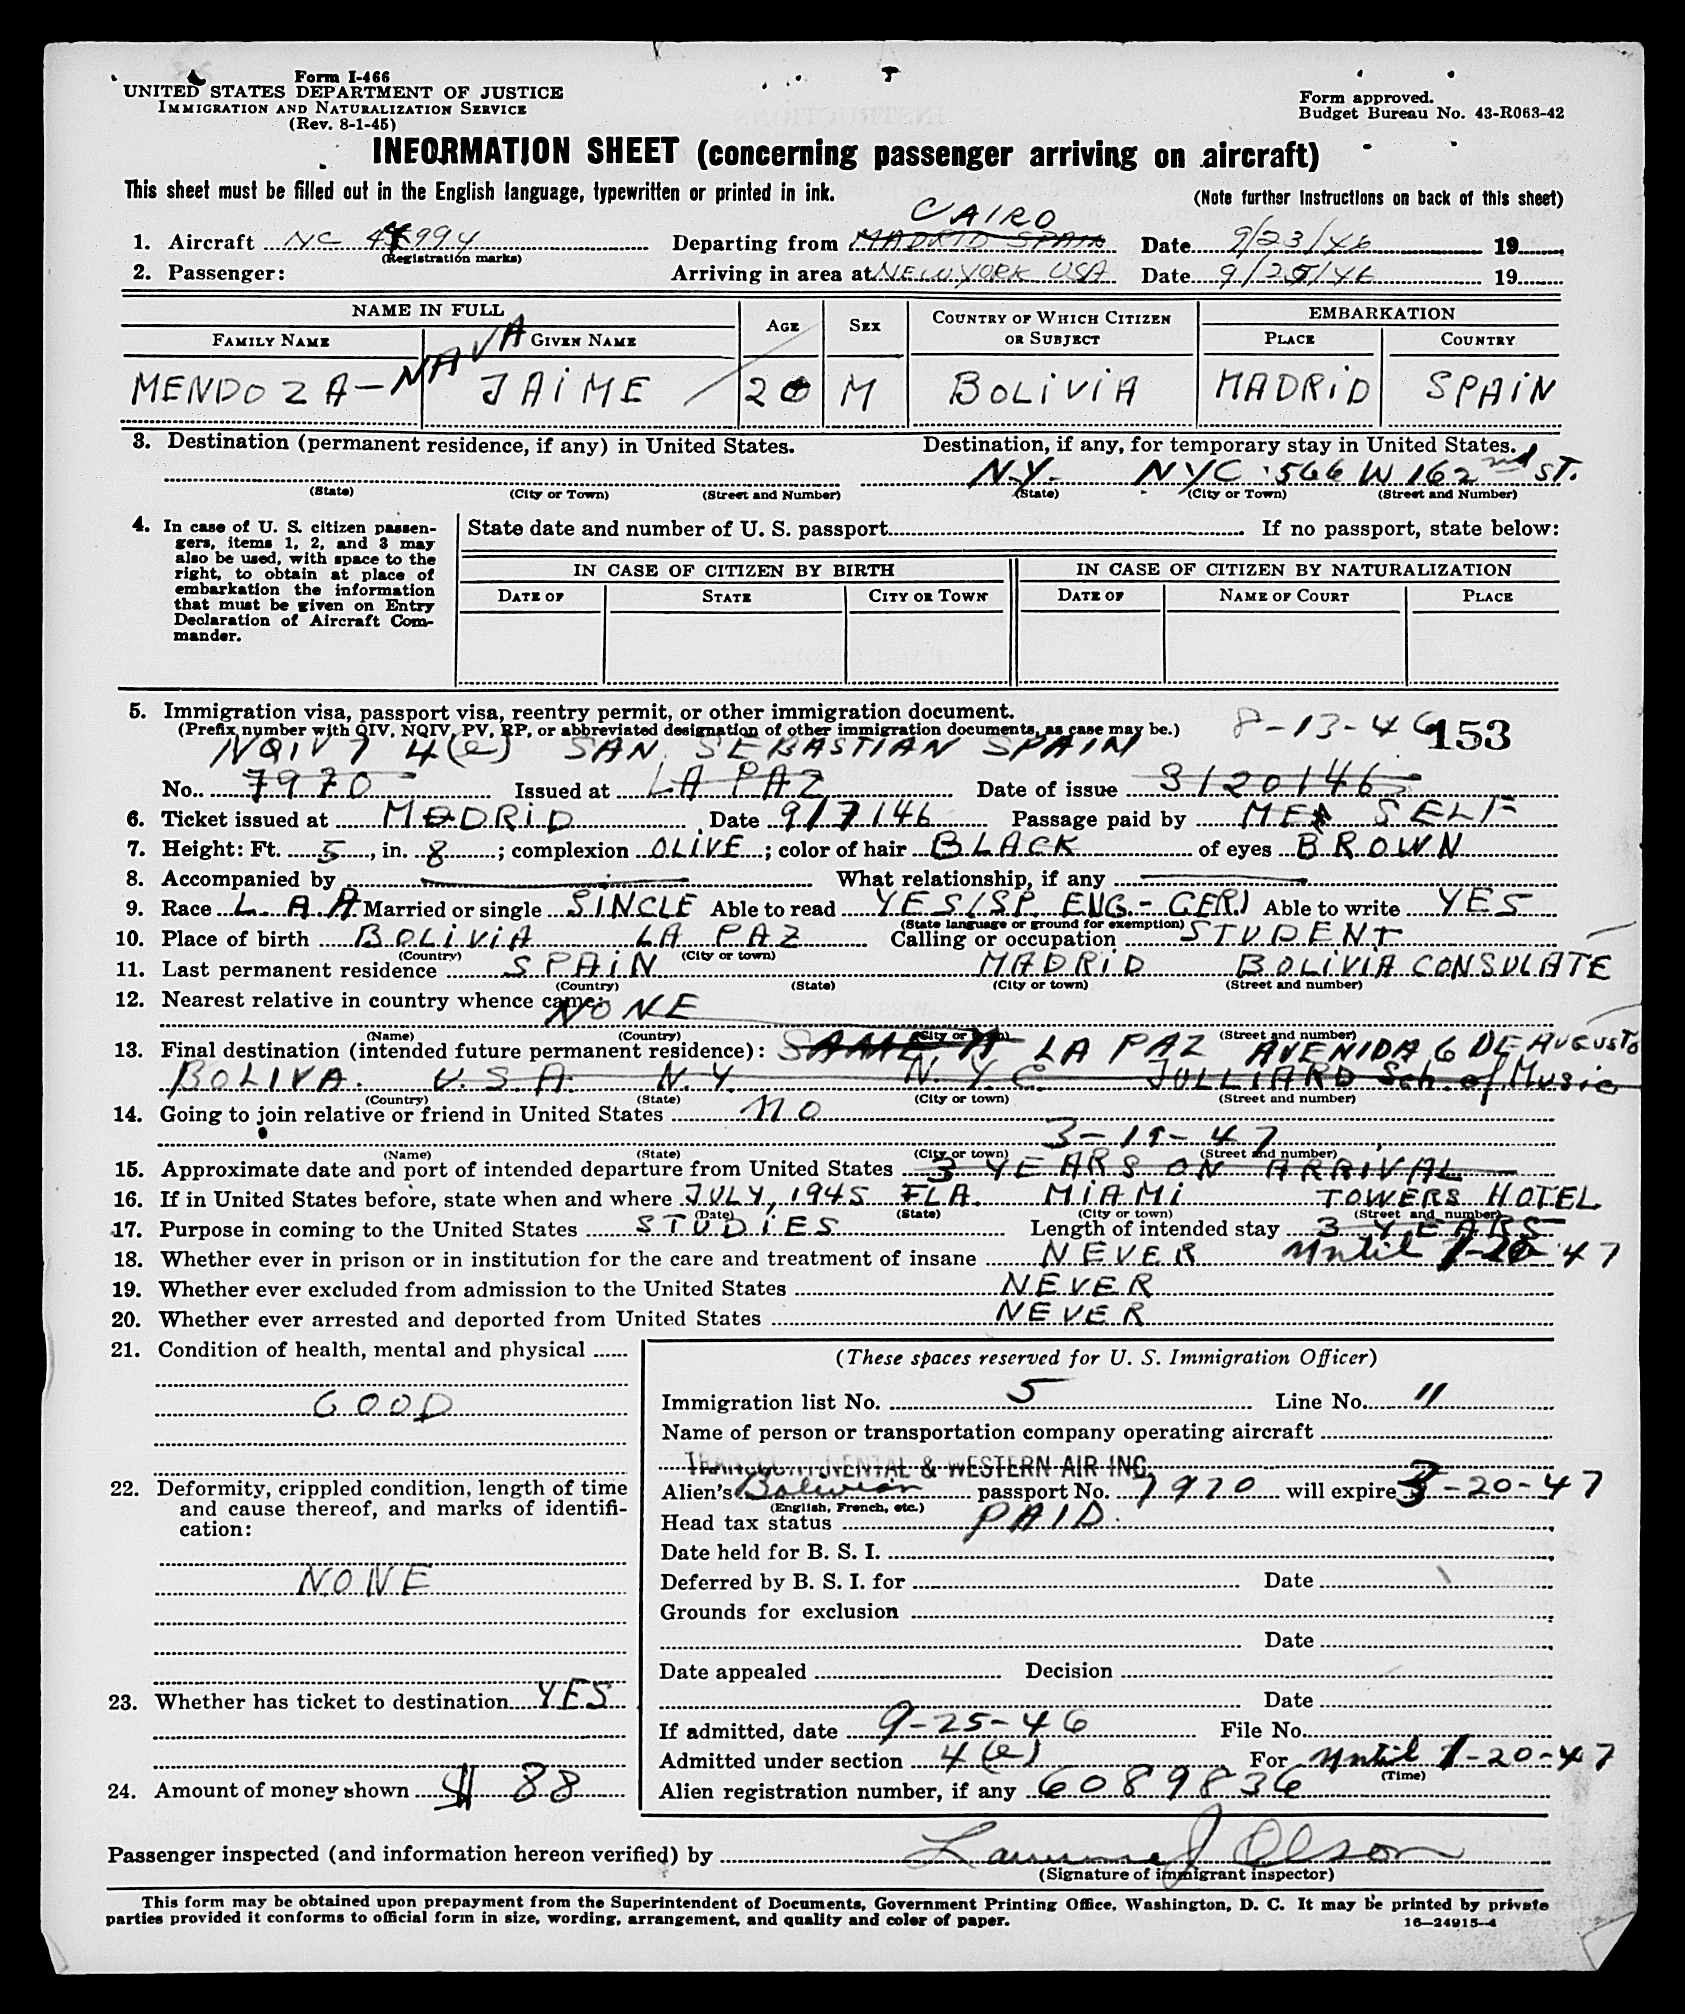 Form I-466
UNITED STATES DEPARTMENT OF JUSTICE
IMMIGRATION AND NATURALIZATION SERVICE
(Rev. 8-1-45)
Form approved.
Budget Bureau No. 43-R063-42
INFORMATION SHEET (concerning passenger arriving on aircraft)
This sheet must be filled out in the English language, typewritten or printed in ink.
(Note further instructions on back of this sheet)
CAIRO
1. Aircraft NC 44994 Departing from MADRID SPAIN Date 9/23/46 19
(Registration marks)
2. Passenger: Arriving in area at NEW YORK USA Date 9/25/46 19
NAME IN FULL AGE SEX COUNTRY OF WHICH CITIZEN OR SUBJECT EMBARKATION
FAMILY NAME GIVEN NAME PLACE COUNTRY
MENDOZA-NAVA JAIME 20 M BOLIVIA MADRID SPAIN
3. Destination (permanent residence, if any) in United States. Destination, if any, for temporary stay in United States.
N.Y. NYC 566 W 162nd ST.
(State) (City or Town) (Street and Number) (State) (City or Town) (Street and Number)
4. In case of U. S. citizen passengers, items 1, 2, and 3 may
also be used, with space to the
right, to obtain at place of
embarkation the information
that must be given on Entry
Declaration of Aircraft Commander.
State date and number of U. S. passport If no passport, state below:
IN CASE OF CITIZEN BY BIRTH IN CASE OF CITIZEN BY NATURALIZATION
DATE OF STATE CITY OR TOWN DATE OF NAME OF COURT PLACE
5. Immigration visa, passport visa, reentry permit, or other immigration document.
(Prefix number with QIV, NQIV, PV, RP, or abbreviated designation of other immigration documents, as case may be.)
8-13-46 153
NQIV 7 4(e) SAN SEBASTIAN SPAIN
No. 7970 Issued at LA PAZ Date of issue 3/20/46
6. Ticket issued at MADRID Date 9/7/46 Passage paid by ME SELF
7. Height: Ft. 5, in. 8; complexion OLIVE; color of hair BLACK of eyes BROWN
8. Accompanied by What relationship, if any
9. Race L.A.A. Married or single SINGLE Able to read YES (SP. ENG.-GER) Able to write YES
(State language or ground for exemption)
10. Place of birth BOLIVIA LA PAZ Calling or occupation STUDENT
(Country) (City or town)
11. Last permanent residence SPAIN MADRID BOLIVIA CONSULATE
(Country) (State) (City or town) (Street and number)
12. Nearest relative in country whence came: NONE
(Name) (Country) (City or town) (Street and number)
13. Final destination (intended future permanent residence): LA PAZ AVENIDA 6 DE AUGUSTO
BOLIVA. U.S.A. N.Y. N.Y.C. JULLIARD Sch. of Music
(Country) (State) (City or town) (Street and number)
14. Going to join relative or friend in United States no
3-19-47
(Name) (State) (City or town) (Street and number)
15. Approximate date and port of intended departure from United States 3 YEARS ON ARRIVAL
16. If in United States before, state when and where JULY, 1945 FLA. MIAMI TOWERS HOTEL
(Date) (State) (City or town) (Street and number)
17. Purpose in coming to the United States STUDIES Length of intended stay 3 YEARS
18. Whether ever in prison or in institution for the care and treatment of insane NEVER until 1-20-47
19. Whether ever excluded from admission to the United States NEVER
20. Whether ever arrested and deported from United States NEVER
21. Condition of health, mental and physical
GOOD
22. Deformity, crippled condition, length of time
and cause thereof, and marks of identification:
NONE
23. Whether has ticket to destination YES
24. Amount of money shown $ 88
(These spaces reserved for U. S. Immigration Officer)
Immigration list No. 5 Line No. 11
Name of person or transportation company operating aircraft
TRANSCONTINENTAL & WESTERN AIR INC.
Alien's Bolivian passport No. 7970 will expire 3-20-47
(English, French, etc.)
Head tax status PAID
Date held for B. S. I.
Deferred by B. S. I. for Date
Grounds for exclusion
Date
Date appealed Decision
Date
If admitted, date 9-25-46 File No.
Admitted under section 4(e) For until 1-20-47
(Time)
Alien registration number, if any 6089836
Passenger inspected (and information hereon verified) by Lawrence J Olson
(Signature of immigrant inspector)
This form may be obtained upon prepayment from the Superintendent of Documents, Government Printing Office, Washington, D. C. It may be printed by private
parties provided it conforms to official form in size, wording, arrangement, and quality and color of paper.
16—24915-4